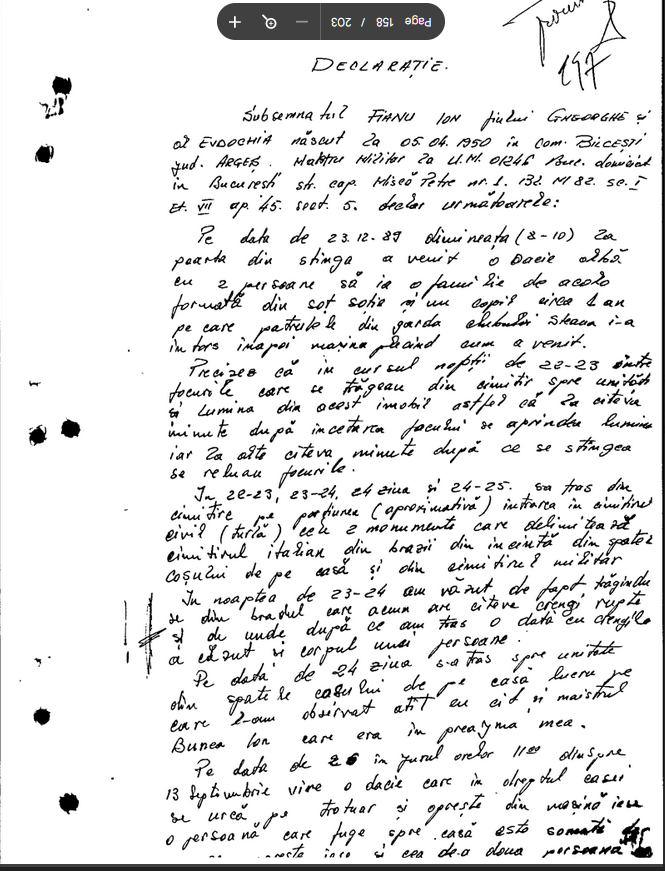 Page 158 / 203
197
DECLARAȚIE.
Subsemnatul FIANU ION fiului GHEORGHE și
al EVDOCHIA născut la 05.04.1950 în com. BILCEȘTI
jud. ARGEȘ. Maistru Militar la U.M. 01246 Buc. domiciliat
in București str. cap. Mișcă Petre nr. 1. bl. M1 82. sc. I
Et. VII ap. 45. sect. 5. declar următoarele:
Pe data de 23.12.89 dimineața (8-10) la
poarta din stinga a venit o Dacie albă
cu 2 persoane să ia o familie de acolo
formată din soț soție și un copil circa 1 an
pe care patrulele din garda clubului Steaua i-a
intors inapoi mașina plecind cum a venit.
Precizez că in cursul nopții de 22-23 între
focurile care se trăgeau din cimitir spre unitate
și Lumina din acest imobil astfel că la citeva
minute după incetarea focului se aprindea lumina
iar la alte citeva minute după ce se stingea
se reluau focurile.
In 22-23, 23-24, 24 ziua și 24-25. s-a tras din
cimitire pe porțiunea (aproximativă) intrarea in cimitirul
civil (turlă) cele 2 monumente care delimitează
cimitirul italian din brazii din incintă din spatele
coșului de pe casă și din cimitirul militar
In noaptea de 23-24 am văzut de fapt trăgindu
se din bradul care acum are citeva crengi rupte
și de unde după ce am tras o dată cu crengile
a căzut și corpul unei persoane.
Pe data de 24 ziua s-a tras spre unitate
din spatele coșului de pe casă lucru pe
care l-am observat atit eu cit și maistrul
Bunea Ion care era in preajma mea.
Pe data de 26 in jurul orelor 11 00 dinspre
13 Septembrie vine o dacie care in dreptul casei
se urcă pe trotuar și oprește din mașină iese
o persoană care fuge spre casă este somată dar
iese și cea de-a doua persoană